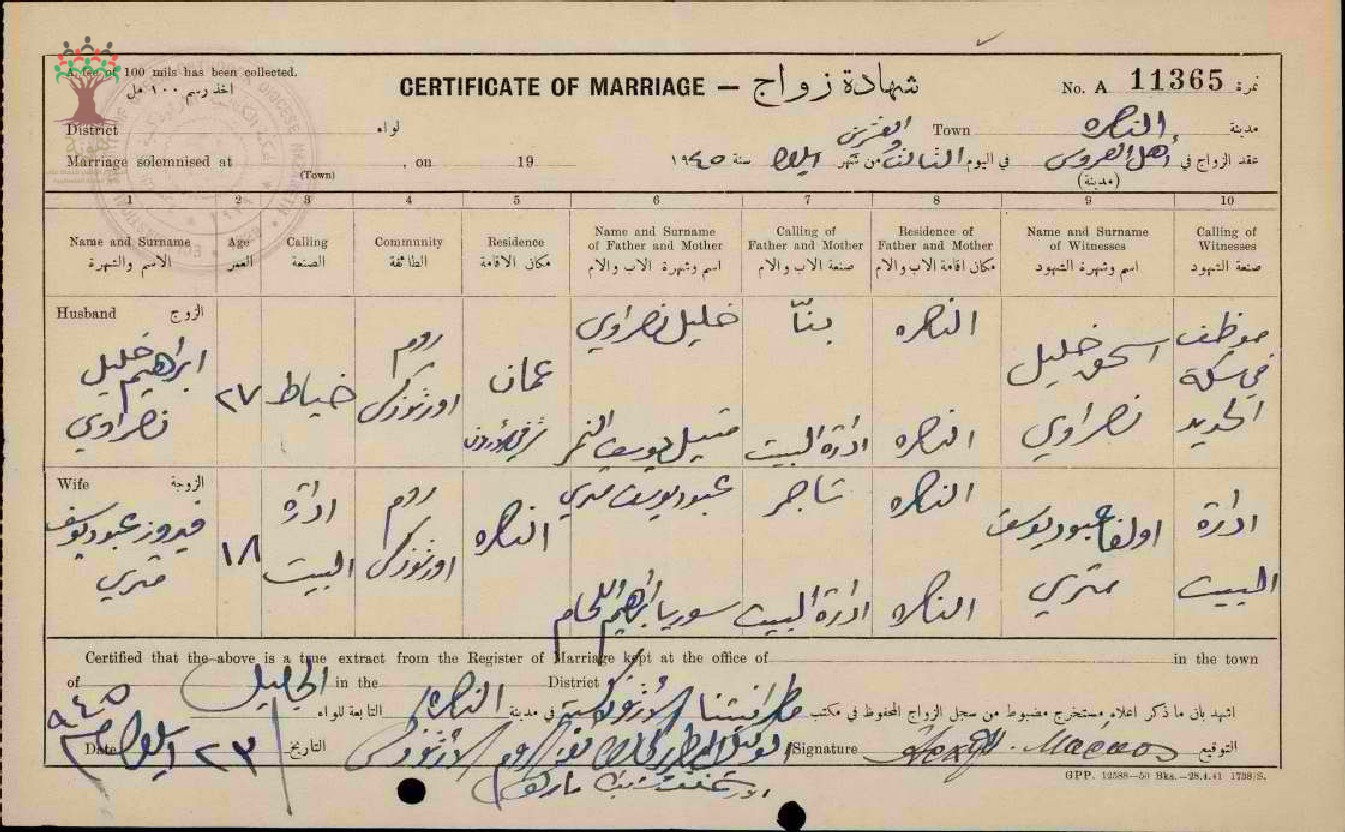 A fee of 100 mils has been collected.
اخذ رسم ١٠٠ مل
CERTIFICATE OF MARRIAGE — شهادة زواج
No. A 11365 نمرة
District لواء
Town الناصره مدينة
Marriage solemnised at , on 19
(Town)
عقد الزواج في اهل العروس في اليوم الثالث والعشرين من شهر ايلول سنة ١٩٤٥
(مدينة)
1 2 3 4 5 6 7 8 9 10
Name and Surname Age Calling Community Residence Name and Surname of Father and Mother Calling of Father and Mother Residence of Father and Mother Name and Surname of Witnesses Calling of Witnesses
الاسم والشهرة العمر الصنعة الطائفة مكان الاقامة اسم وشهرة الاب والام صنعة الاب والام مكان اقامة الاب والام اسم وشهرة الشهود صنعة الشهود
Husband الزوج
ابراهيم خليل
نصراوي
٢٧
خياط
روم
اورثوذكس
عمان
شرقي الاردن
خليل نصراوي
يوسف النمر
بنّا
ادارة البيت
الناصره
الناصره
اسحق خليل
نصراوي
موظف
في سكة
الحديد
Wife الزوجة
فيروز عبود يوسف
متري
١٨
ادارة
البيت
روم
اورثوذكس
الناصره
عبود يوسف متري
سوريا ابراهيم اللحام
تاجر
ادارة البيت
الناصره
الناصره
اولغا عبود يوسف
متري
ادارة
البيت
Certified that the above is a true extract from the Register of Marriage kept at the office of in the town
of in the District
اشهد بان ما ذكر اعلاه مستخرج مضبوط من سجل الزواج المحفوظ في مكتب مطرانيتنا الارثوذكسية في مدينة الناصره التابعة للواء الجليل
Date ٢٣ ايلول ٩٤٥ التاريخ
Signature التوقيع
الروم الارثوذكس
GPP. 12588—50 Bks.—28.4.41 1728/S.